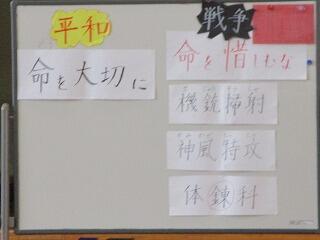 平和
命を大切に
戦争
命を惜しむな
機銃掃射
神風特攻
体錬科